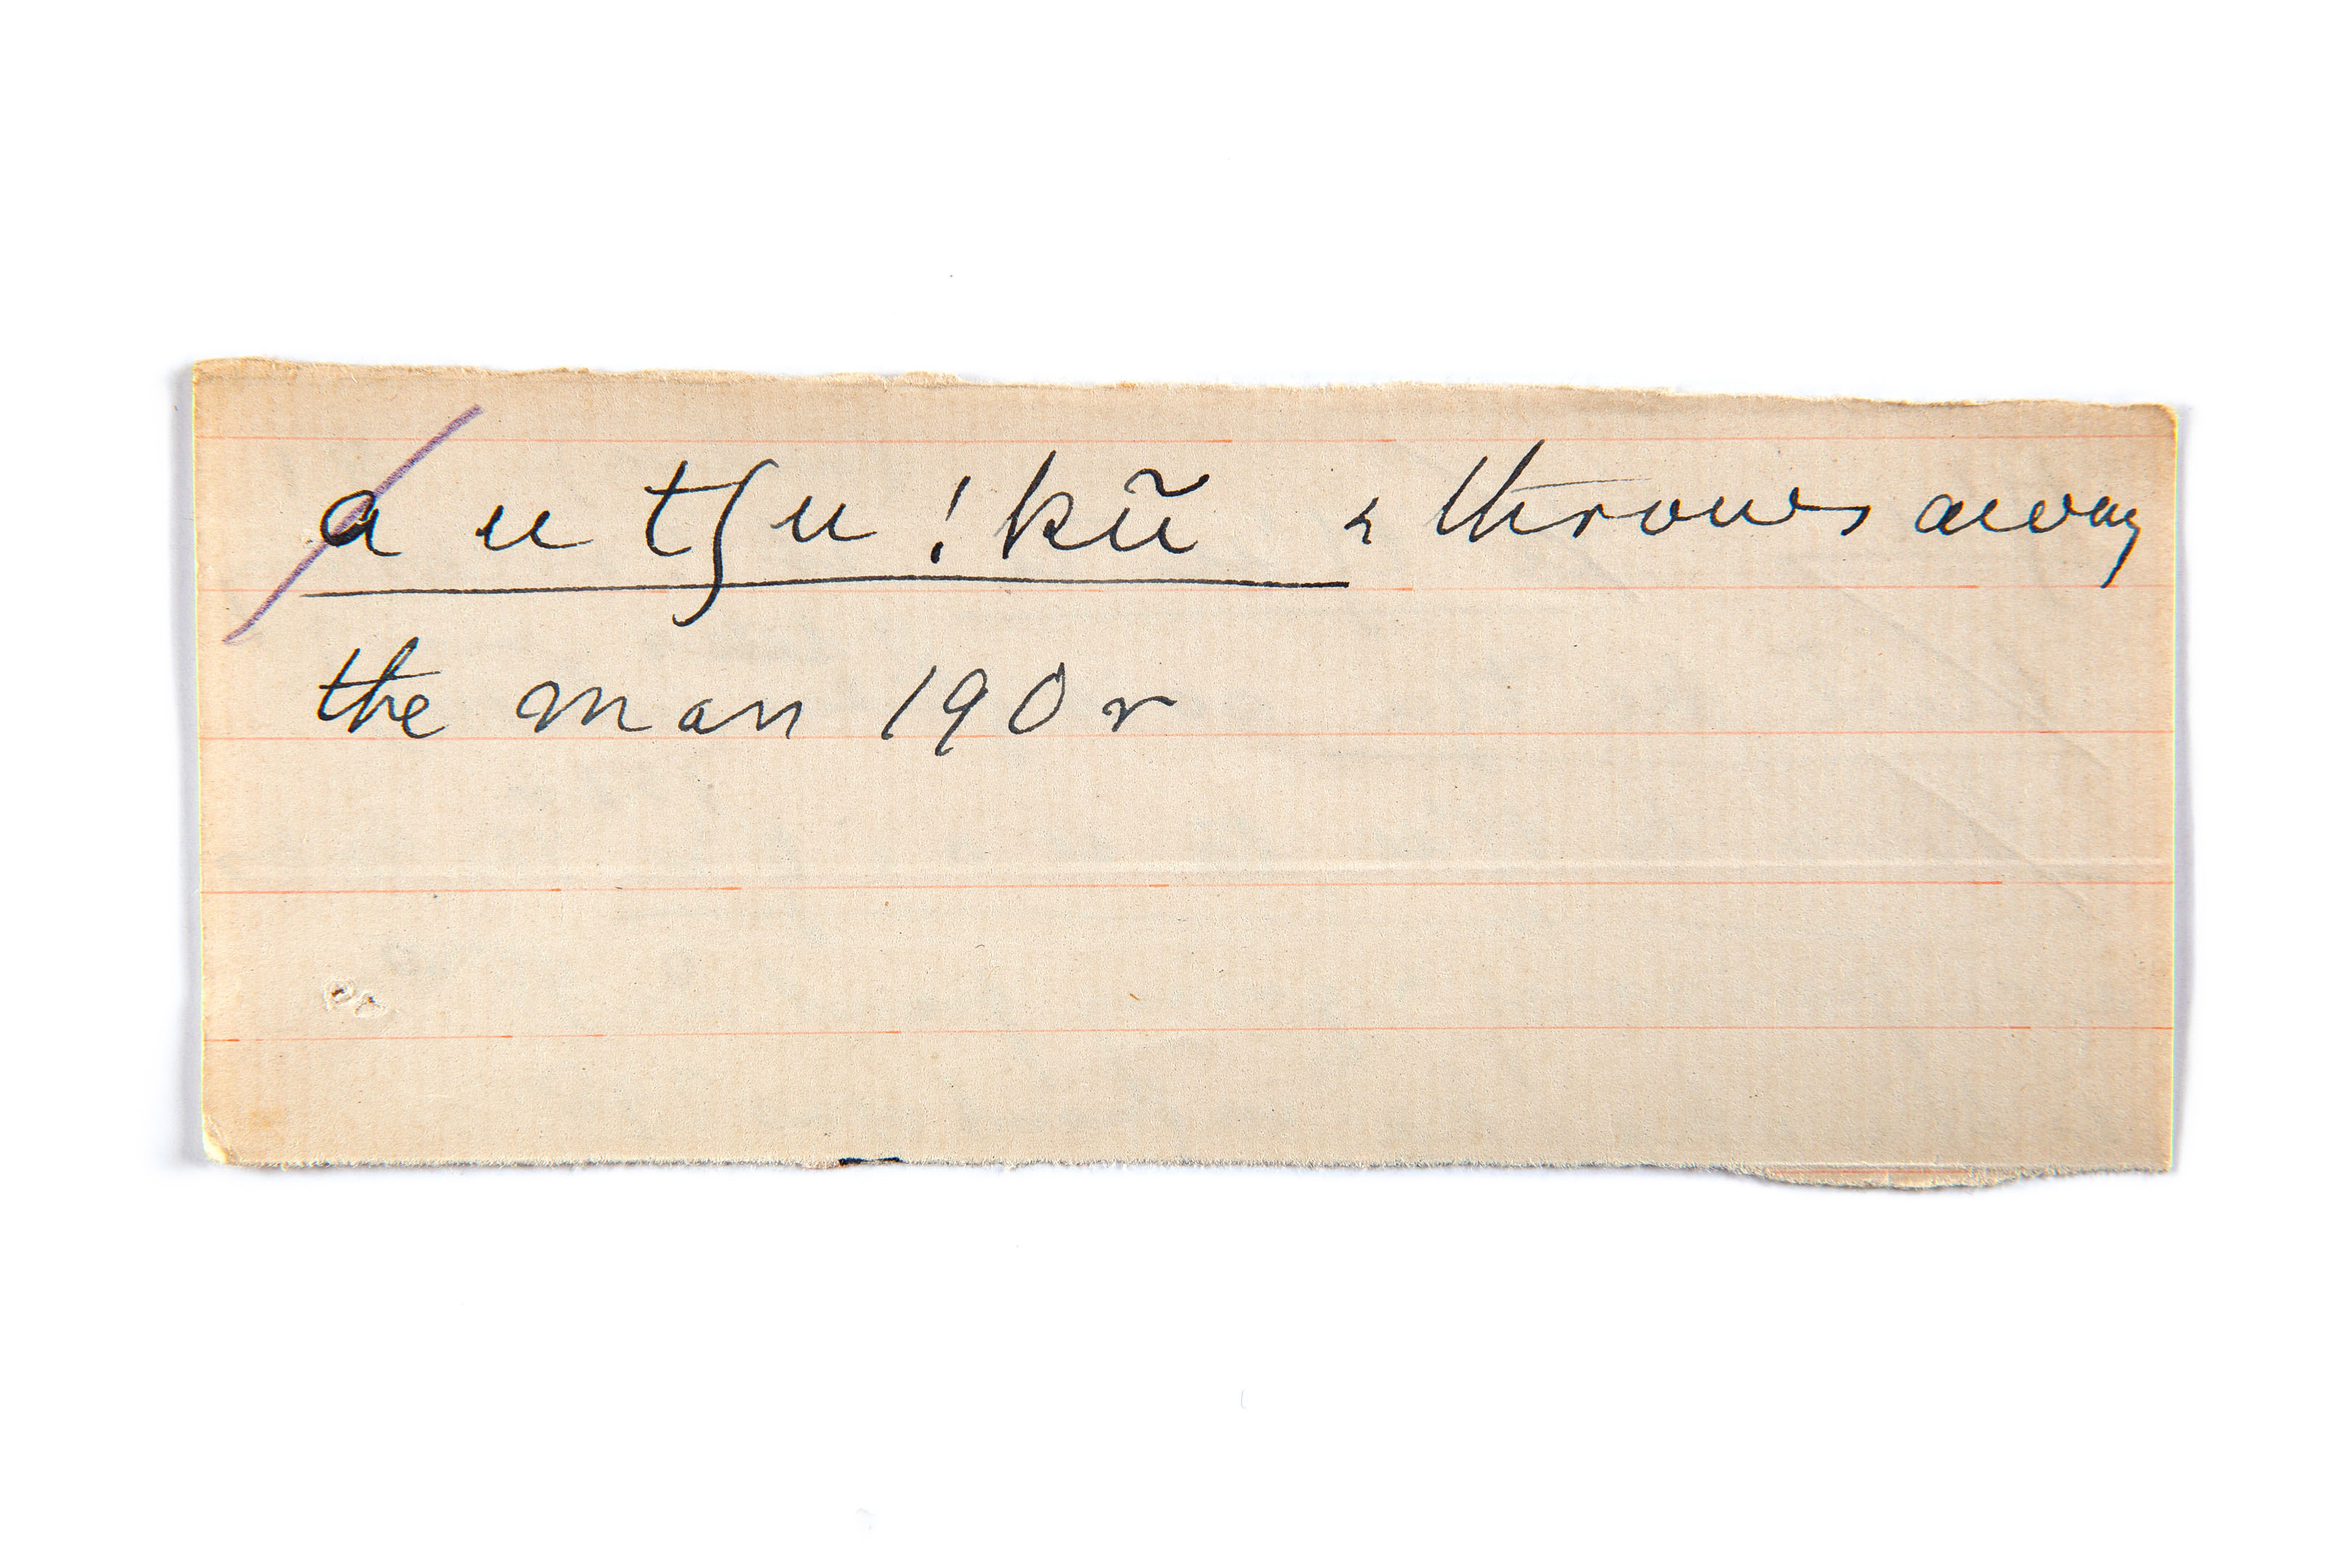 a u tʃu !kũ & throws away
the man 190 r